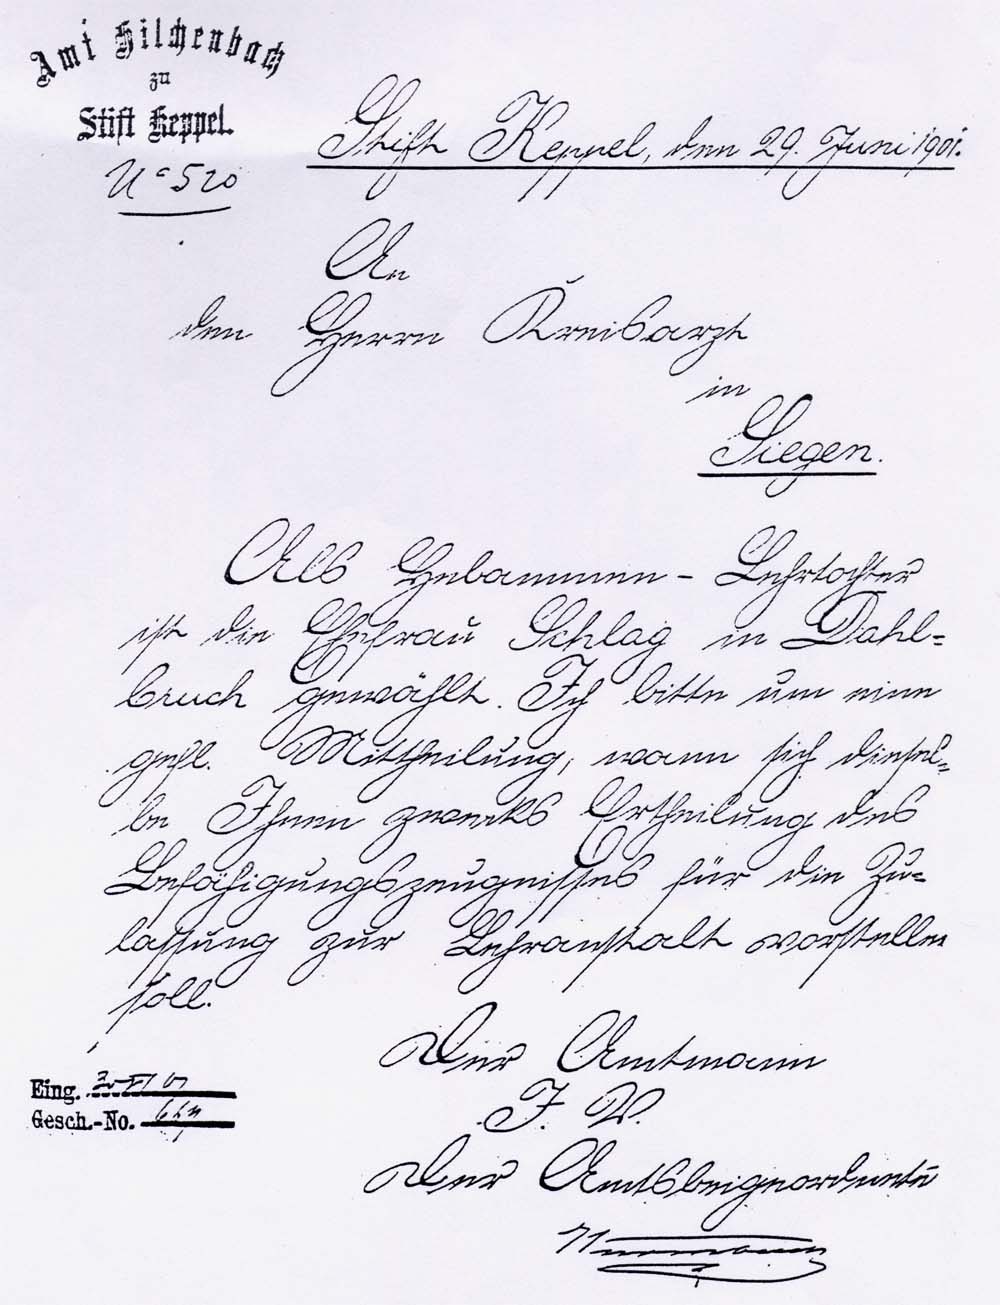 Amt Hilchenbach
zu
Stift Keppel.
No 520
Stift Keppel, den 29. Juni 1901.
An
den Herrn Kreisarzt
in
Siegen.
Als Hebammen-Lehrtochter
ist die Ehefrau Schlag in Dahl=
bruch gewählt. Ich bitte um eine
gefl. Mittheilung, wann sich diesel=
be Ihnen zwecks Ertheilung des
Befähigungszeugnisses für die Zu=
lassung zur Lehranstalt vorstellen
soll.
Der Amtmann
I. V.
Der Amtsbeigeordnete
Eing.
Gesch.-No.